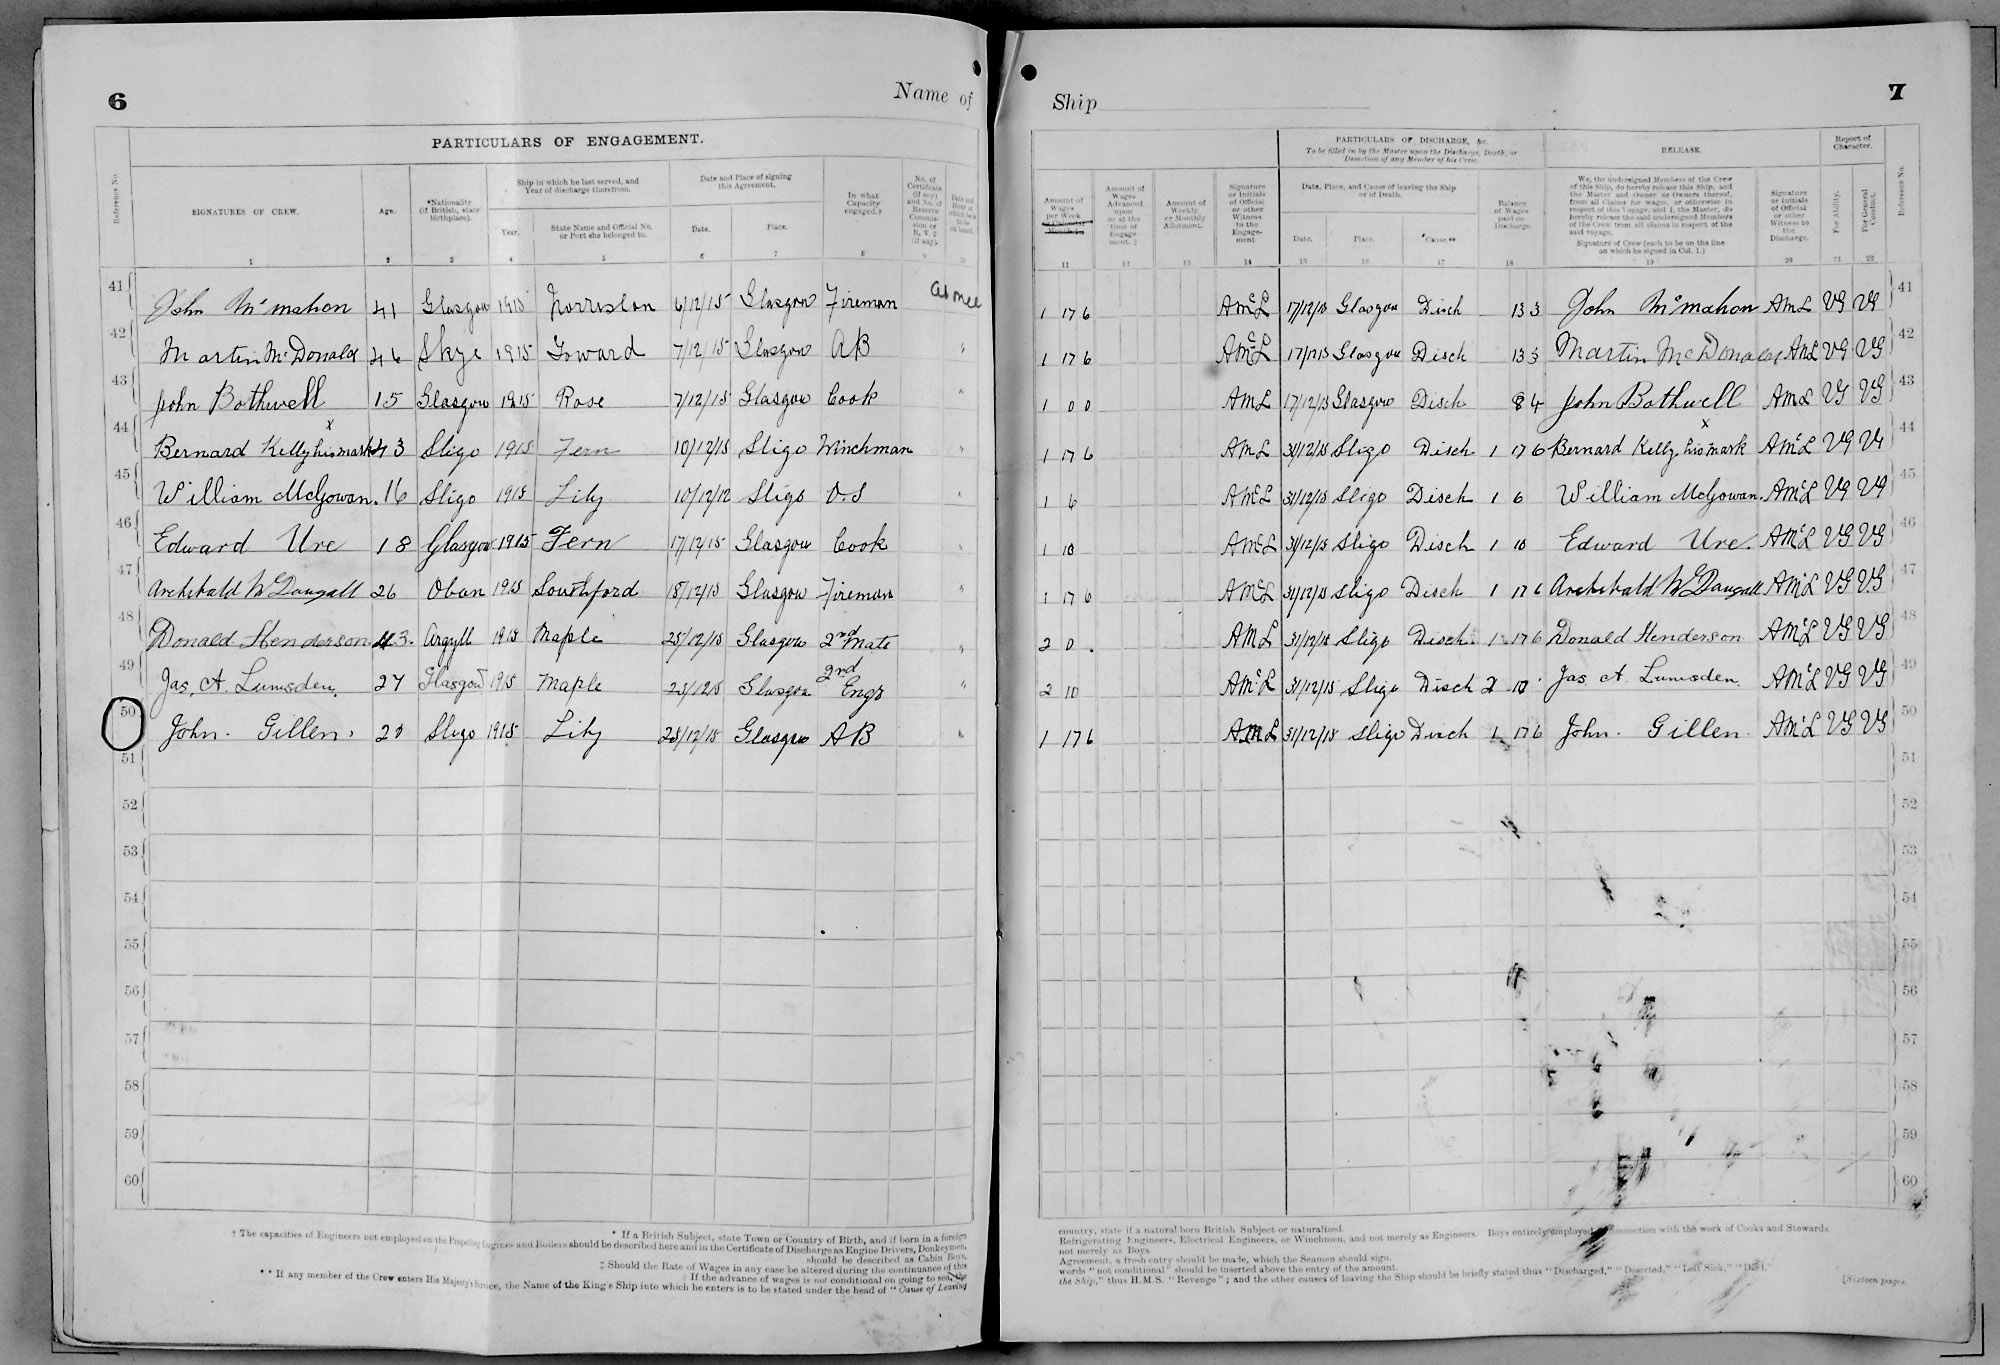 6
Name of
Ship
7
PARTICULARS OF ENGAGEMENT.
PARTICULARS OF DISCHARGE, &c.
To be filled in by the Master upon the Discharge, Death, or Desertion of any Member of his Crew.
RELEASE.
Report of Character.
Reference No.
SIGNATURES OF CREW.
Age.
*Nationality (if British, state birthplace).
Ship in which he last served, and Year of discharge therefrom.
Year.
State Name and Official No. or Port she belonged to.
Date and Place of signing this Agreement.
Date.
Place.
In what Capacity engaged.†
No. of Certificate (if any) and No. of Reserve Commission or R.V.2 (if any).
Amount of Wages per Week
Amount of Wages Advanced upon or at the time of Engagement.‡
Amount of Weekly or Monthly Allotment.
Signature or Initials of Official or other Witness to the Engagement
Date, Place, and Cause of leaving the Ship or of Death.
Date.
Place.
Cause.**
Balance of Wages paid on Discharge.
We, the undersigned Members of the Crew of this Ship, do hereby release this Ship, and the Master and Owner or Owners thereof, from all Claims for wages, or otherwise in respect of this Voyage, and I, the Master, do hereby release the said undersigned Members of the Crew from all claims in respect of the said voyage.
Signature of Crew (each to be on the line on which he signed in Col. 1.)
Signature or Initials of Official or other Witness to the Discharge.
For Ability.
For General Conduct.
Reference No.
1 2 3 4 5 6 7 8 9 10 11 12 13 14 15 16 17 18 19 20 21 22
41 John McMahon 41 Glasgow 1915 Norriston 6/12/15 Glasgow Fireman At once 1 17 6 AMcL 17/12/15 Glasgow Disch 13 3 John McMahon AMcL VG VG 41
42 Martin McDonald 46 Skye 1915 Toward 7/12/15 Glasgow AB " 1 17 6 AMcL 17/12/15 Glasgow Disch 13 3 Martin McDonald AMcL VG VG 42
43 John Bothwell 15 Glasgow 1915 Rose 7/12/15 Glasgow Cook " 1 0 0 AMcL 17/12/15 Glasgow Disch 8 4 John Bothwell AMcL VG VG 43
44 Bernard Kelly his x mark 43 Sligo 1915 Fern 10/12/15 Sligo Winchman " 1 17 6 AMcL 31/12/15 Sligo Disch 1 17 6 Bernard Kelly his x mark AMcL VG VG 44
45 William McGowan. 16 Sligo 1915 Lily 10/12/12 Sligo O.S " 1 6 AMcL 31/12/15 Sligo Disch 1 6 William McGowan. AMcL VG VG 45
46 Edward Ure 18 Glasgow 1915 Fern 17/12/15 Glasgow Cook " 1 10 AMcL 31/12/15 Sligo Disch 1 10 Edward Ure. AMcL VG VG 46
47 Archibald McDougall 26 Oban 1915 Southford 18/12/15 Glasgow Fireman " 1 17 6 AMcL 31/12/15 Sligo Disch 1 17 6 Archibald McDougall AMcL VG VG 47
48 Donald Henderson 43. Argyll 1915 Maple 25/12/15 Glasgow 2nd Mate " 2 0 . AMcL 31/12/15 Sligo Disch. 1 17 6 Donald Henderson AMcL VG VG 48
49 Jas. A. Lumsden. 27 Glasgow 1915 Maple 25/12/15 Glasgow 2nd Engr " 2 10 AMcL 31/12/15 Sligo Disch 2 10 Jas. A. Lumsden. AMcL VG VG 49
50 John. Gillen. 20 Sligo 1915 Lily 25/12/15 Glasgow AB " 1 17 6 AMcL 31/12/15 Sligo Disch 1 17 6 John. Gillen. AMcL VG VG 50
51 51
52 52
53 53
54 54
55 55
56 56
57 57
58 58
59 59
60 60
* If a British Subject, state Town or Country of Birth, and if born in a foreign country, state if a natural born British Subject or naturalized.
† The capacities of Engineers not employed on the Propelling Engines and Boilers should be described here and in the Certificate of Discharge as Engine Drivers, Donkeymen, Refrigerating Engineers, Electrical Engineers, or Winchmen, and not merely as Engineers. Boys entirely employed in connection with the work of Cooks and Stewards should be described as Cabin Boys, not merely as Boys
‡ Should the Rate of Wages in any case be altered during the continuance of this Agreement, a fresh entry should be made, which the Seamen should sign.
If the advance of wages is not conditional on going to sea, the words "not conditional" should be inserted above the entry of the amount.
** If any member of the Crew enters His Majesty's Service, the Name of the King's Ship into which he enters is to be stated under the head of "Cause of Leaving the Ship," thus H.M.S. "Revenge"; and the other causes of leaving the Ship should be briefly stated thus "Discharged," "Deserted," "Left Sick," "Died."
[Sixteen pages.